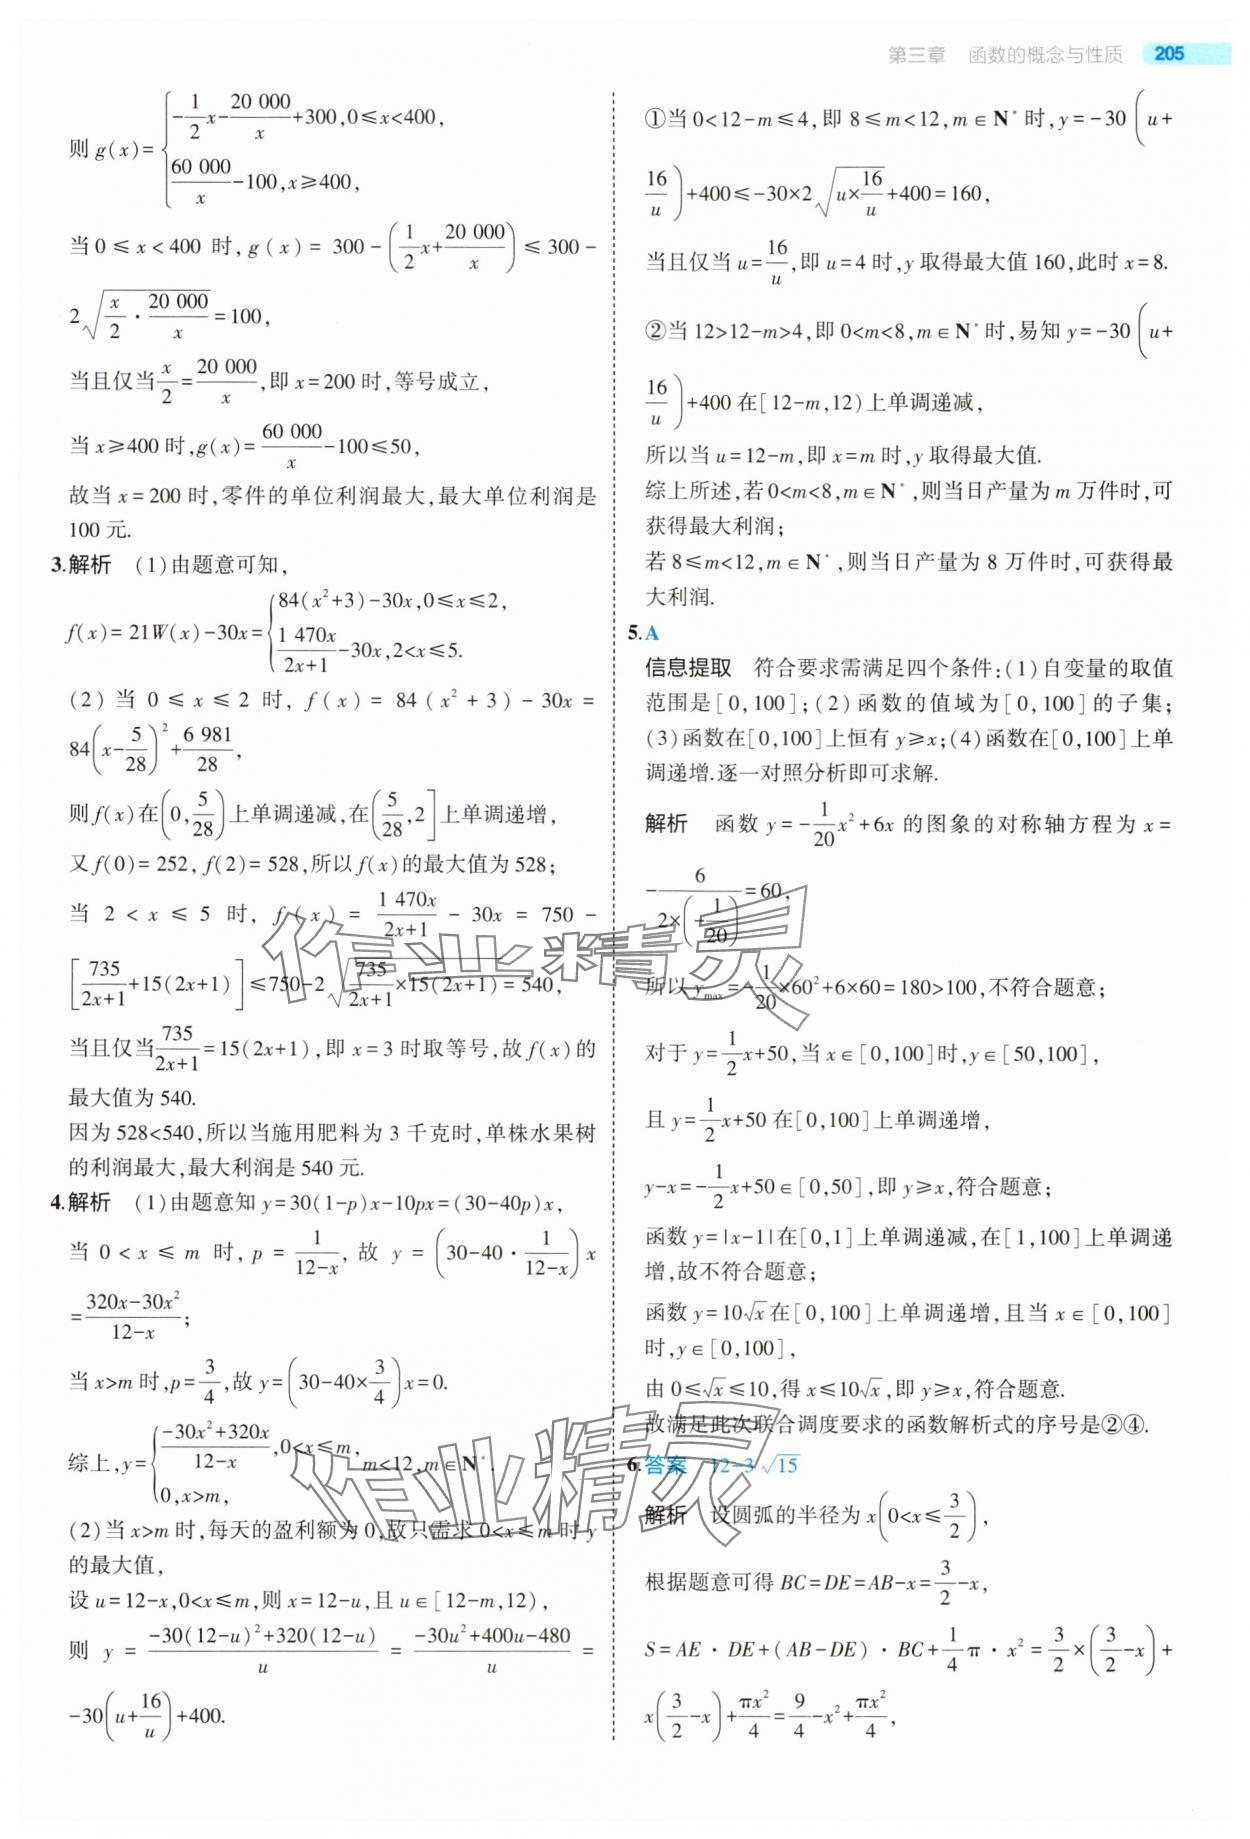 第三章 函数的概念与性质 205
则 g(x)={-1/2x-20 000/x+300,0≤x<400,
60 000/x-100,x≥400,
当 0≤x<400 时,g(x)=300-(1/2x+20 000/x)≤300-
2√(x/2·20 000/x)=100,
当且仅当x/2=20 000/x,即 x=200 时,等号成立,
当 x≥400 时,g(x)=60 000/x-100≤50,
故当 x=200 时,零件的单位利润最大,最大单位利润是
100 元.
3.解析 (1)由题意可知,
f(x)=21W(x)-30x={84(x²+3)-30x,0≤x≤2,
1 470x/(2x+1)-30x,2<x≤5.
(2)当 0≤x≤2 时,f(x)=84(x²+3)-30x=
84(x-5/28)²+6 981/28,
则f(x)在(0,5/28)上单调递减,在(5/28,2]上单调递增,
又 f(0)=252,f(2)=528,所以 f(x)的最大值为 528;
当 2<x≤5 时,f(x)=1 470x/(2x+1)-30x=750-
[735/(2x+1)+15(2x+1)]≤750-2√(735/(2x+1)×15(2x+1))=540,
当且仅当735/(2x+1)=15(2x+1),即 x=3 时取等号,故 f(x)的
最大值为 540.
因为 528<540,所以当施用肥料为 3 千克时,单株水果树
的利润最大,最大利润是 540 元.
4.解析 (1)由题意知 y=30(1-p)x-10px=(30-40p)x,
当 0<x≤m 时,p=1/(12-x),故 y=(30-40·1/(12-x))x
=(320x-30x²)/(12-x);
当 x>m 时,p=3/4,故 y=(30-40×3/4)x=0.
综上,y={(-30x²+320x)/(12-x),0<x≤m,
0,x>m, m<12,m∈N*.
(2)当 x>m 时,每天的盈利额为 0,故只需求 0<x≤m 时 y
的最大值,
设 u=12-x,0<x≤m,则 x=12-u,且 u∈[12-m,12),
则 y=(-30(12-u)²+320(12-u))/u=(-30u²+400u-480)/u=
-30(u+16/u)+400.
①当 0<12-m≤4,即 8≤m<12,m∈N*时,y=-30(u+
16/u)+400≤-30×2√(u×16/u)+400=160,
当且仅当 u=16/u,即 u=4 时,y 取得最大值 160,此时 x=8.
②当 12>12-m>4,即 0<m<8,m∈N*时,易知 y=-30(u+
16/u)+400 在[12-m,12)上单调递减,
所以当 u=12-m,即 x=m 时,y 取得最大值.
综上所述,若 0<m<8,m∈N*,则当日产量为 m 万件时,可
获得最大利润;
若 8≤m<12,m∈N*,则当日产量为 8 万件时,可获得最
大利润.
5.A
信息提取 符合要求需满足四个条件:(1)自变量的取值
范围是[0,100];(2)函数的值域为[0,100]的子集;
(3)函数在[0,100]上恒有 y≥x;(4)函数在[0,100]上单
调递增.逐一对照分析即可求解.
解析 函数 y=-1/20x²+6x 的图象的对称轴方程为 x=
-6/(2×(-1/20))=60,
所以 ymax=-1/20×60²+6×60=180>100,不符合题意;
对于 y=1/2x+50,当 x∈[0,100]时,y∈[50,100],
且 y=1/2x+50 在[0,100]上单调递增,
y-x=-1/2x+50∈[0,50],即 y≥x,符合题意;
函数 y=|x-1|在[0,1]上单调递减,在[1,100]上单调递
增,故不符合题意;
函数 y=10√x在[0,100]上单调递增,且当 x∈[0,100]
时,y∈[0,100],
由 0≤√x≤10,得 x≤10√x,即 y≥x,符合题意.
故满足此次联合调度要求的函数解析式的序号是②④.
6.答案 12-3√15
解析 设圆弧的半径为 x(0<x≤3/2),
根据题意可得 BC=DE=AB-x=3/2-x,
S=AE·DE+(AB-DE)·BC+1/4π·x²=3/2×(3/2-x)+
x(3/2-x)+πx²/4=9/4-x²+πx²/4,
作业精灵
作业精灵